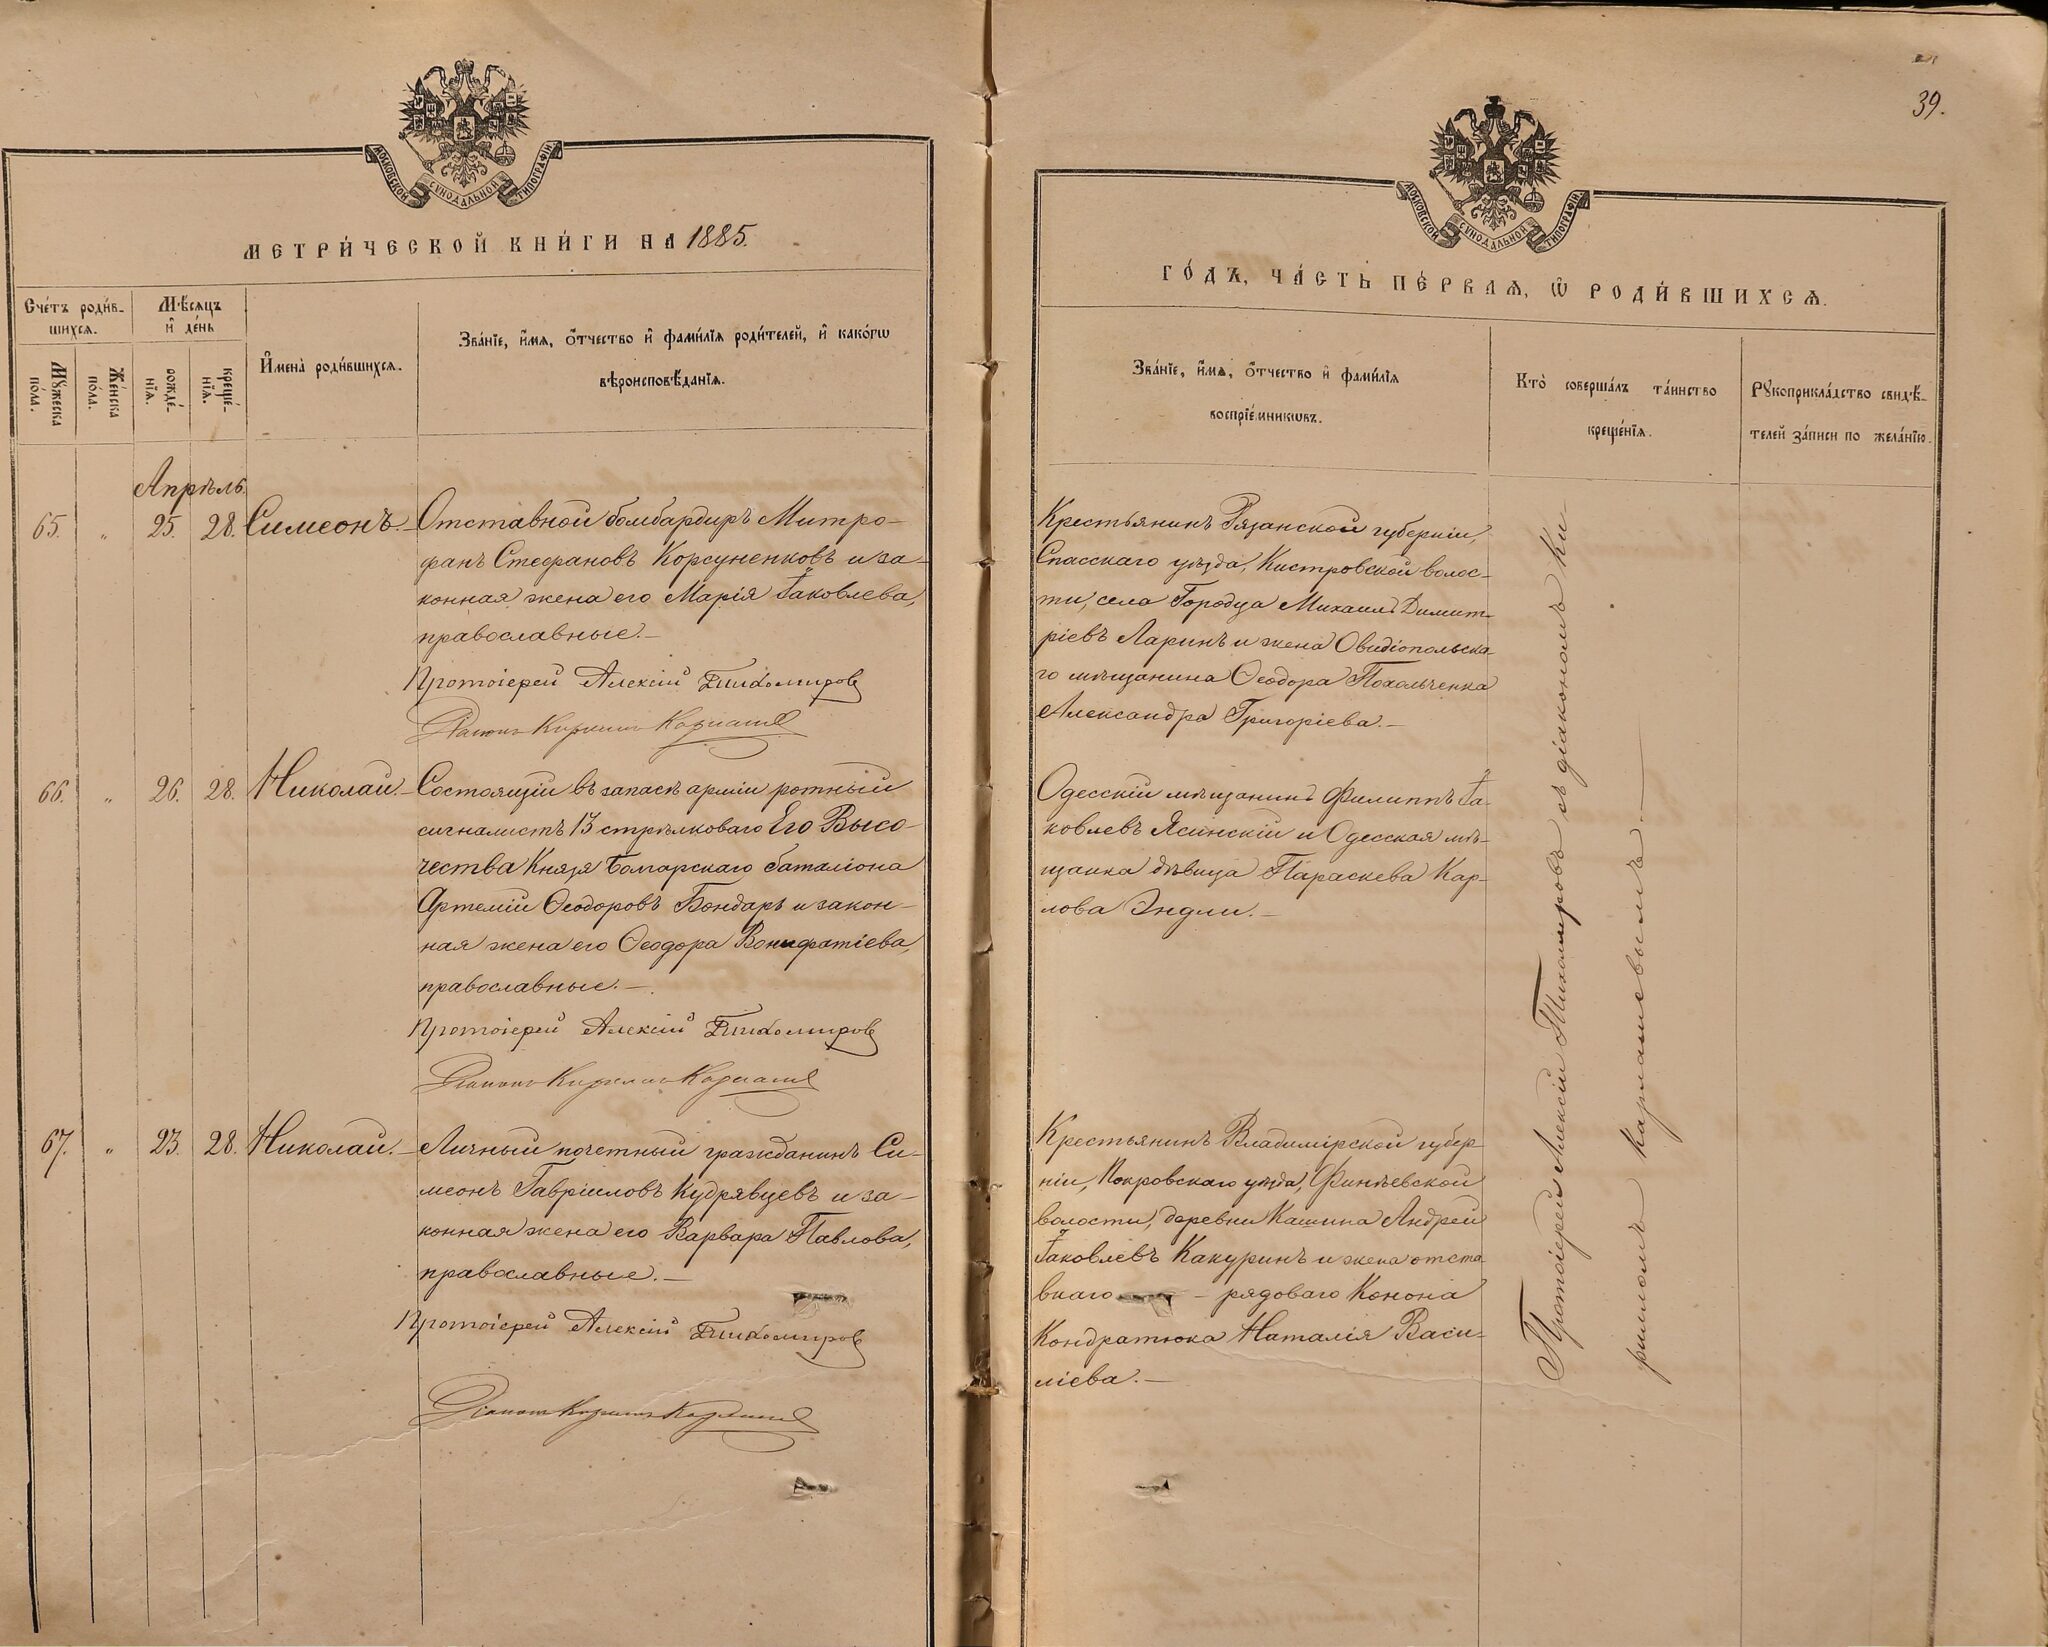 МОСКОВСКОЙ СѴНОДАЛЬНОЙ ТИПОГРАФІИ
МЕТРИ́ЧЕСКОЙ КНИ́ГИ НА 1885.
Сче́тъ роди́в-
шихсѧ.
Мѣ́сѧцъ
и҆ де́нь
Мꙋ́жеска
по́ла.
Же́нска
по́ла.
рожде́-
нїѧ.
креще́-
нїѧ.
И҆мена̀ роди́вшихсѧ.
Зва́нїе, и҆́мѧ, ѻ҆́тчество и҆ фами́лїѧ роди́телей, и҆ како́гѡ
вѣроисповѣ́данїѧ.
Апрѣль.
65. " 25. 28. Симеонъ. — Отставной бомбардиръ Митро-
фанъ Стефановъ Корсуненковъ и за-
конная жена его Марія Іаковлева,
православные. —
Протоіерей Алексій Тихомировъ
Діаконъ Кириллъ Кармашевъ
66. " 26. 28. Николай. — Состоящій въ запасѣ арміи ротный
сигналистъ 13 стрѣлковаго Его Высо-
чества Князя Болгарскаго баталіона
Артемій Ѳеодоровъ Бондарь и закон-
ная жена его Ѳеодора Вонифатіева,
православные. —
Протоіерей Алексій Тихомировъ
Діаконъ Кириллъ Кармашевъ
67. " 23. 28. Николай. — Личный почетный гражданинъ Си-
меонъ Гавріиловъ Кудрявцевъ и за-
конная жена его Варвара Павлова,
православные. —
Протоіерей Алексій Тихомировъ
Діаконъ Кириллъ Кармашевъ
39.
МОСКОВСКОЙ СѴНОДАЛЬНОЙ ТИПОГРАФІИ
ГО́ДЪ, ЧА́СТЬ ПЕ́РВАѦ, Ѡ҆ РОДИ́ВШИХСѦ.
Зва́нїе, и҆́мѧ, ѻ҆́тчество и҆ фами́лїѧ
воспрїе́мникѡвъ.
Кто̀ соверша́лъ та́инство
креще́нїѧ.
Рꙋкоприкла́дство свидѣ́-
телей за́писи по жела́нїю.
Крестьянинъ Рязанской губерніи,
Спасскаго уѣзда, Кистровской волос-
ти, села Городца Михаилъ Димит-
ріевъ Ларинъ и жена Овидіопольска-
го мѣщанина Ѳеодора Похольченка
Александра Григоріева. —
Одесскій мѣщанинъ Филиппъ Іа-
ковлевъ Ясинскій и Одесская мѣ-
щанка дѣвица Параскева Кар-
лова Эндли. —
Крестьянинъ Владимірской губер-
ніи, Покровскаго уѣзда, Финѣевской
волости, деревни Кашина Андрей
Іаковлевъ Какуринъ и жена отста-
внаго — рядоваго Конона
Кондратюка Наталія Васи-
ліева. —
Протоіерей Алексій Тихомировъ съ діакономъ Ки-
рилломъ Кармашевымъ. —